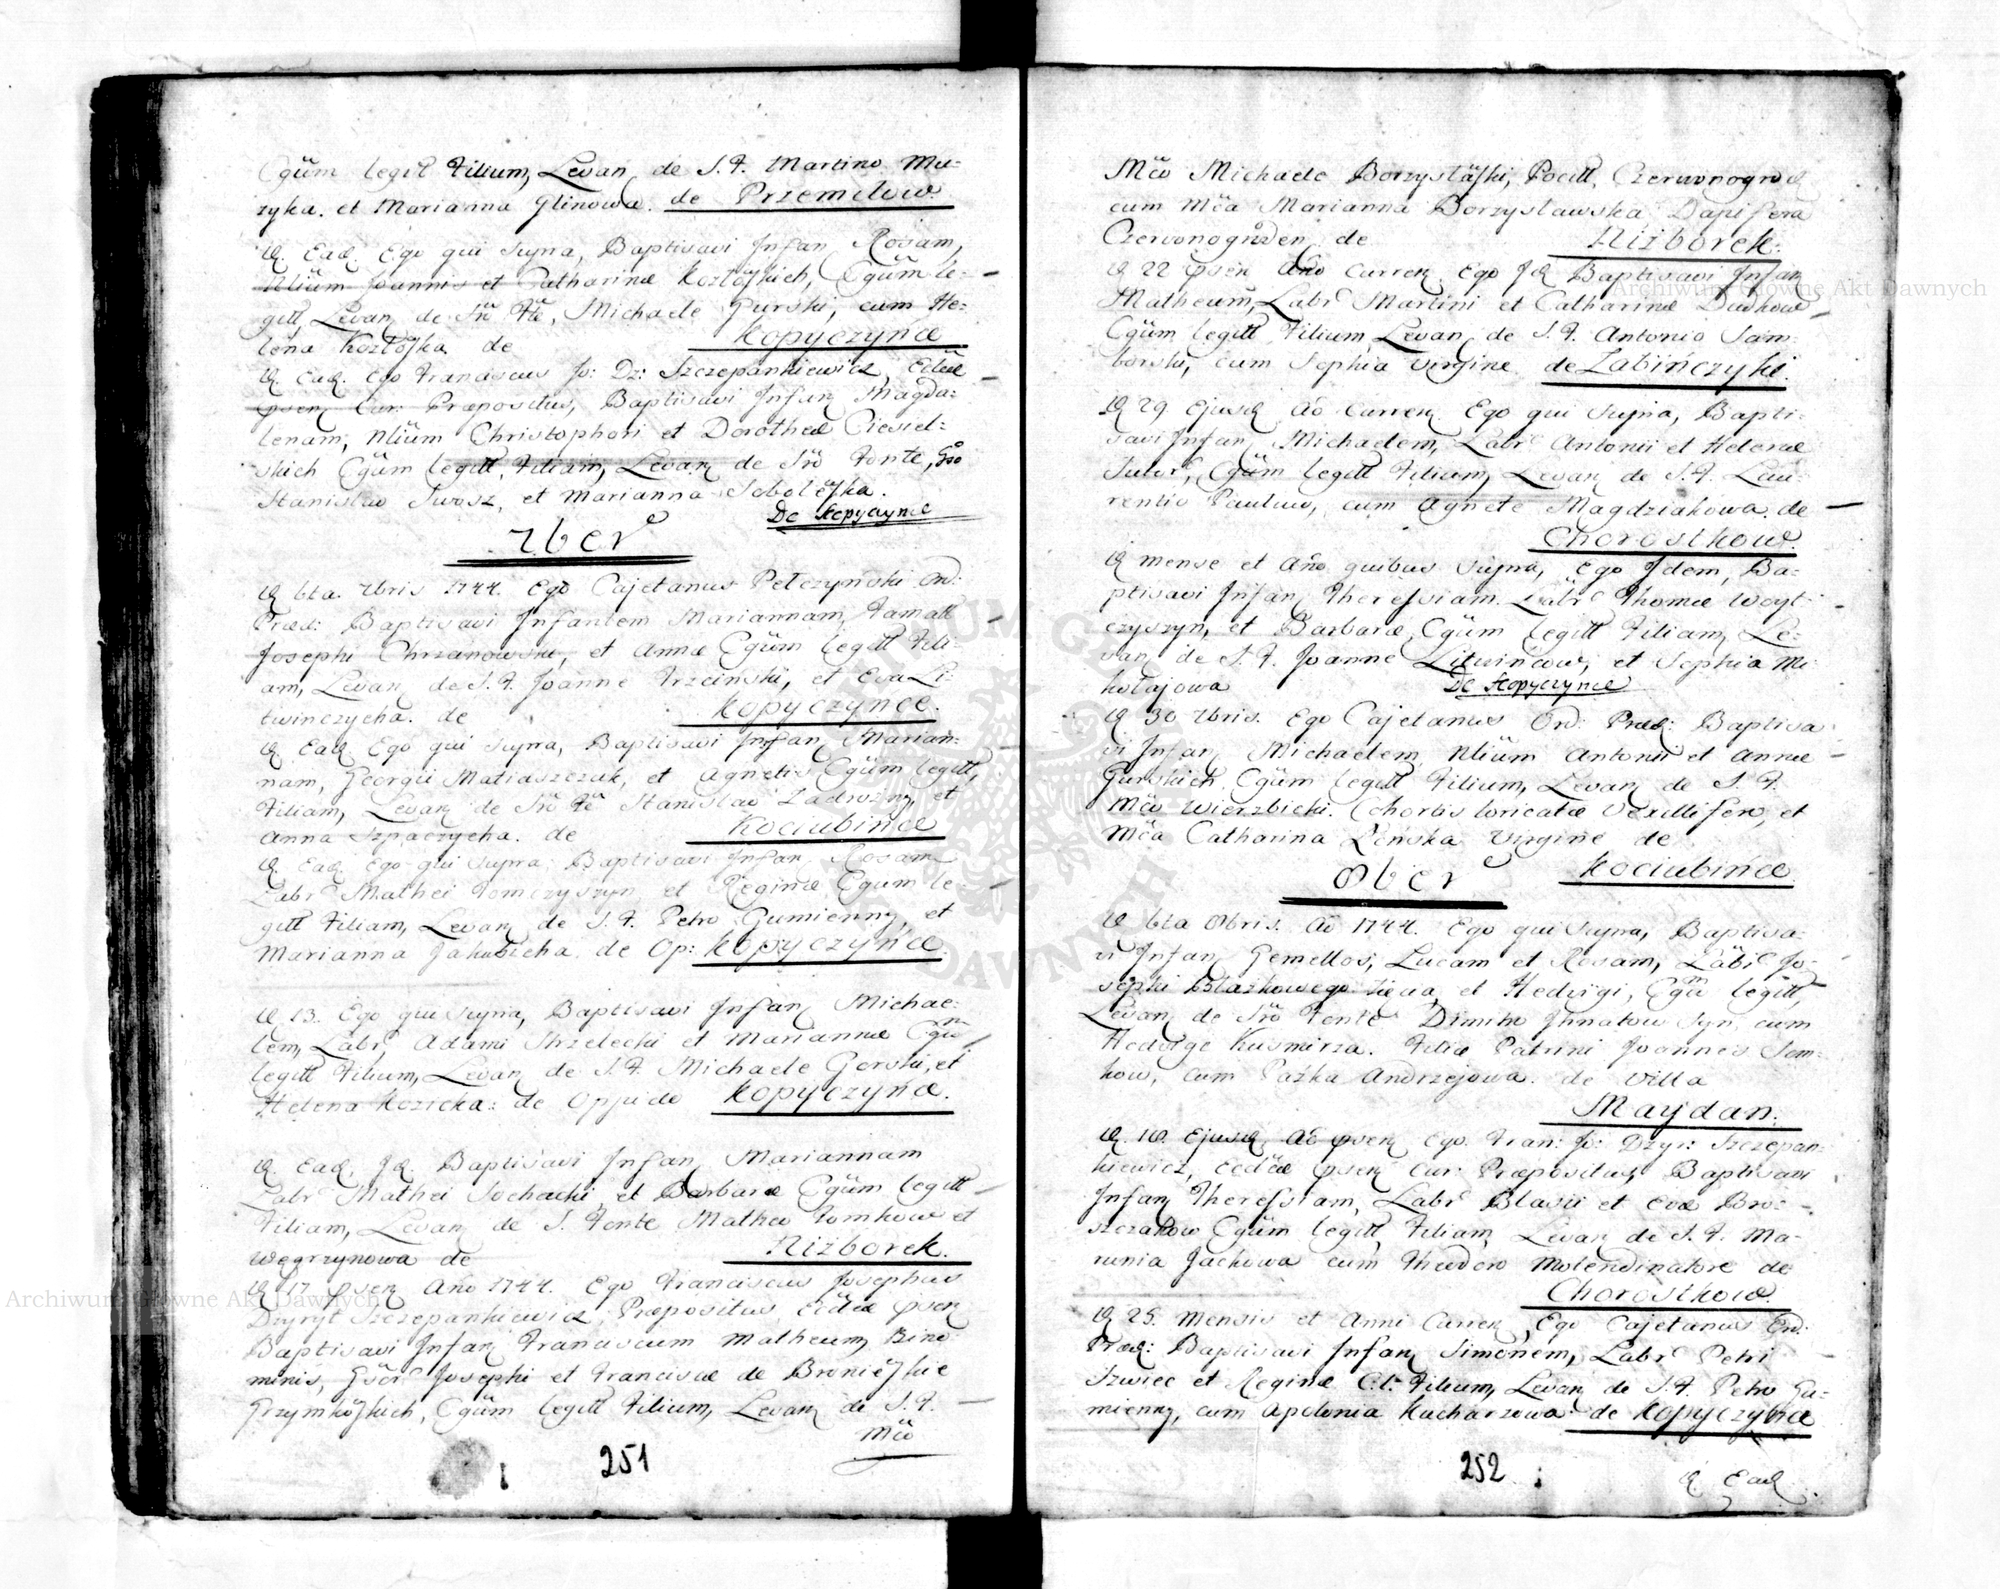 Cgũm legit Filium, Levan de S. F. Martino Mu-
zyka. et Marianna Glinowa. de Przemilow.
D. Ead. Ego qui supra, Baptisavi Infan Rosam,
Nlium Joannis et Catharinæ Kozlõskich, Cgũm le-
gitt, Levan de Sro Fte, Michaele Gurski, cum He-
lena Kozlõska de Kopyczynce
D. Ead. Ego Franciscus Jo: Dz: Szczepankiewicz, Eclæ
psen Cur: Præpositus, Baptisavi Infan Magda-
lenam, Nlium Christophori et Dorotheæ Ciesiel-
skich Cgũm legitt, Filiam, Levan de Sro Fonte, Gso
Stanislao Swosz, et Marianna Sobolẽska.
De Kopyczynce
7beris
D. 6ta. 7bris 1744. Ego Cajetanus Pełczynski Ord:
Præd: Baptisavi Infantem Mariannam, Famatt
Josephi Chrzanowski, et Annæ Cgũm legitt Fili-
am, Levan de S. F. Joanne Trzcinski, et Eva Li-
twinczycha. de Kopyczynce.
D. Ead. Ego qui supra, Baptisavi Infan Marian-
nam, Georgii Matiaszczuk, et Agnetis Cgũm legitt,
Filiam, Levan de Sro Fte Stanislao Zadwozny, et
Anna Szpaczycha. de Kociubince
D. Ead. Ego qui supra, Baptisavi Infan Rosam
Labr Mathei Tomczyszyn et Reginæ Cgum le-
gitt Filiam, Levan de S. F. Petro Gumienny, et
Marianna Jakubicha. de Op: Kopyczyńce.
D. 13. Ego qui supra, Baptisavi Infan Michae-
lem, Labr Adami Strzelecki et Mariannæ Cgũ
legitt Filium, Levan de S. F. Michaele Gorski, et
Helena Kozicka: de Oppido Kopyczynce.
D. Ead. Id. Baptisavi Infan Mariannam
Labr Mathei Sochacki et Barbaræ Cgũm legitt
Filiam, Levan de S. Fonte Matheo Tomkow et
Węgrzynowa de Niżborek.
D 17 psen Ano 1744. Ego Franciscus Josephus
Dzyryt Szczepankiewicz, Præpositus Eclæ psen
Baptisavi Infan Franciscum Matheum, Bino
minis, Gscr Josephi et Franciscæ de Broniẽskie
Grzymkõskich, Cgũm legitt Filium, Levan de S. F.
Mco
251
Mco Michaele Borzysłãski, Pocill, Czerwonogrod
cum Mca Marianna Borzyslawska Dapifera
Czerwonogroden de Niżborek.
D 22 psen Ano Curren Ego Id Baptisavi Infan
Matheum, Labr Martini et Catharinæ Dudkow
Cgũm legitt Filium, Levan de S. F. Antonio Sam-
borski, cum Sophia Virgine de Łabińczyki.
D 29 Ejusd Ao Curren Ego qui supra, Bapti-
savi Infan Michaelem, Labr Antonii et Helenæ
Sutor, Cgũm legitt Filium, Levan de S. F. Lau-
rentio Pauluw, cum Agnete Magdziakowa. de
Chorostkow.
D mense et Ano quibus supra, Ego Idem, Ba-
ptisavi Infan Theressiam. Labr Thomæ Woyt-
czyszyn, et Barbaræ, Cgũm legitt Filiam, Le-
van de S. F. Joanne Litwincow, et Sophia Mi-
kołajowa De Kopyczynce
D 30 7bris. Ego Cajetanus Ord: Præd: Baptisa
vi Infan Michaelem, Nlium Antonii et Annæ
Gurskich, Cgũm legitt Filium, Levan de S. F.
Mco Wierzbicki. Chortis loricatæ Vexillifero, et
Mca Catharina Leńska Virgine de
Kociubińce
8beris
D 6ta 8bris. Ao 1744. Ego qui supra, Baptisa-
vi Infan Gemellos, Lucam et Rosam, Labr Jo-
sephi Błazkowego Zięcia, et Hedvigi, Cgũm legitt,
Levan de Sro Fonte Dimitro Ihnatow Syn, cum
Hedvige Kusmirza. Filiæ Patrini Joannes Sem-
kow, cum Pazka Andrzejowa. de Villa
Maydan.
D. 10. Ejusd. Ao psen Ego Fran: Jo: Dzyr: Szczepan-
kiewicz, Eclæ psen Cur: Præpositus, Baptisavi
Infan Theressiam, Labr Blasii et Evæ Bro-
szczakow Cgũm legitt, Filiam, Levan de S. F. Ma-
runia Jachowa cum Theodoro Molendinatore de
Chorostkow.
D 25. Mensis et Anni Curren, Ego Cajetanus Ord:
Præd: Baptisavi Infan Simonem, Labr Petri
Szwiec et Reginæ C: l: Filium, Levan de S. F. Petro Gu-
mienny, cum Apolonia Kucharzowa. de Kopyczynce
252
D. Ead
Archiwum Główne Akt Dawnych
Archiwum Główne Akt Dawnych